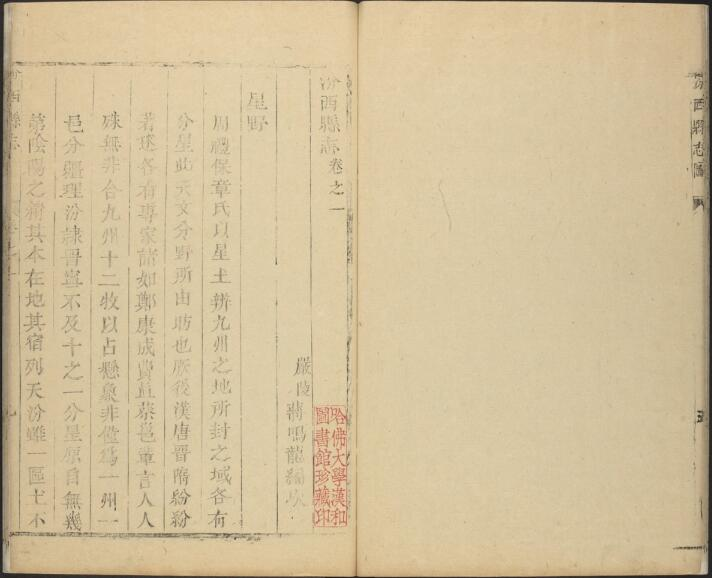 汾西縣志圖
汾西縣志卷之一
嚴陵蔣鳴龍編次
哈佛大學漢和
圖書館珍藏印
星野
周禮保章氏以星土辨九州之地所封之域各有
分星此天文分野所由昉也厥後漢唐晉隋紛紛
著述各有專家諸如鄭康成費直蔡邕輩言人人
殊無非合九州十二牧以占懸象非僅爲一州一
邑分疆理汾隷晋寧不及十之一分星原自無幾
第陰陽之精其本在地其宿列天汾雖一區土不
汾西縣志